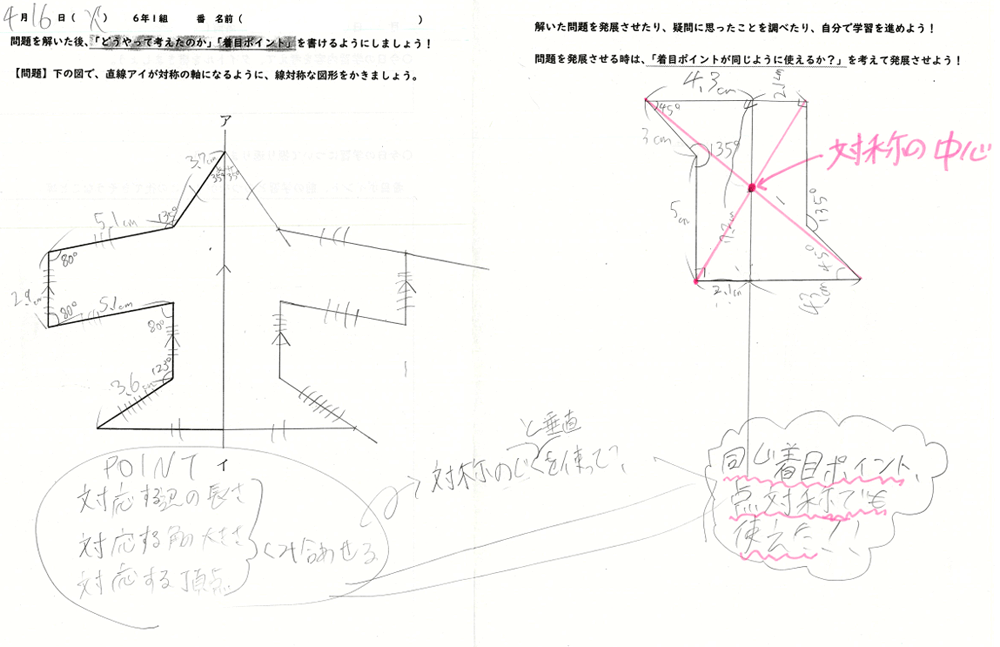 4月16日（火） 6年1組 番 名前（ ）
問題を解いた後、「どうやって考えたのか」「着目ポイント」を書けるようにしましょう！
【問題】下の図で、直線アイが対称の軸になるように、線対称な図形をかきましょう。
ア
3.7cm
35° 35°
135°
5.1cm
80°
2.9cm
80°
5.1cm
80°
125°
3.6cm
イ
POINT
対応する辺の長さ
対応する角の大きさ
対応する頂点
くみ合わせる
と垂直
対称のじくを使って、
解いた問題を発展させたり、疑問に思ったことを調べたり、自分で学習を進めよう！
問題を発展させる時は、「着目ポイントが同じように使えるか？」を考えて発展させよう！
4.3cm
2.1cm
45°
3cm
135°
対称の中心
5cm
135°
45°
2.1cm
4.3cm
同じ着目ポイント、
点対称でも
使えた！！